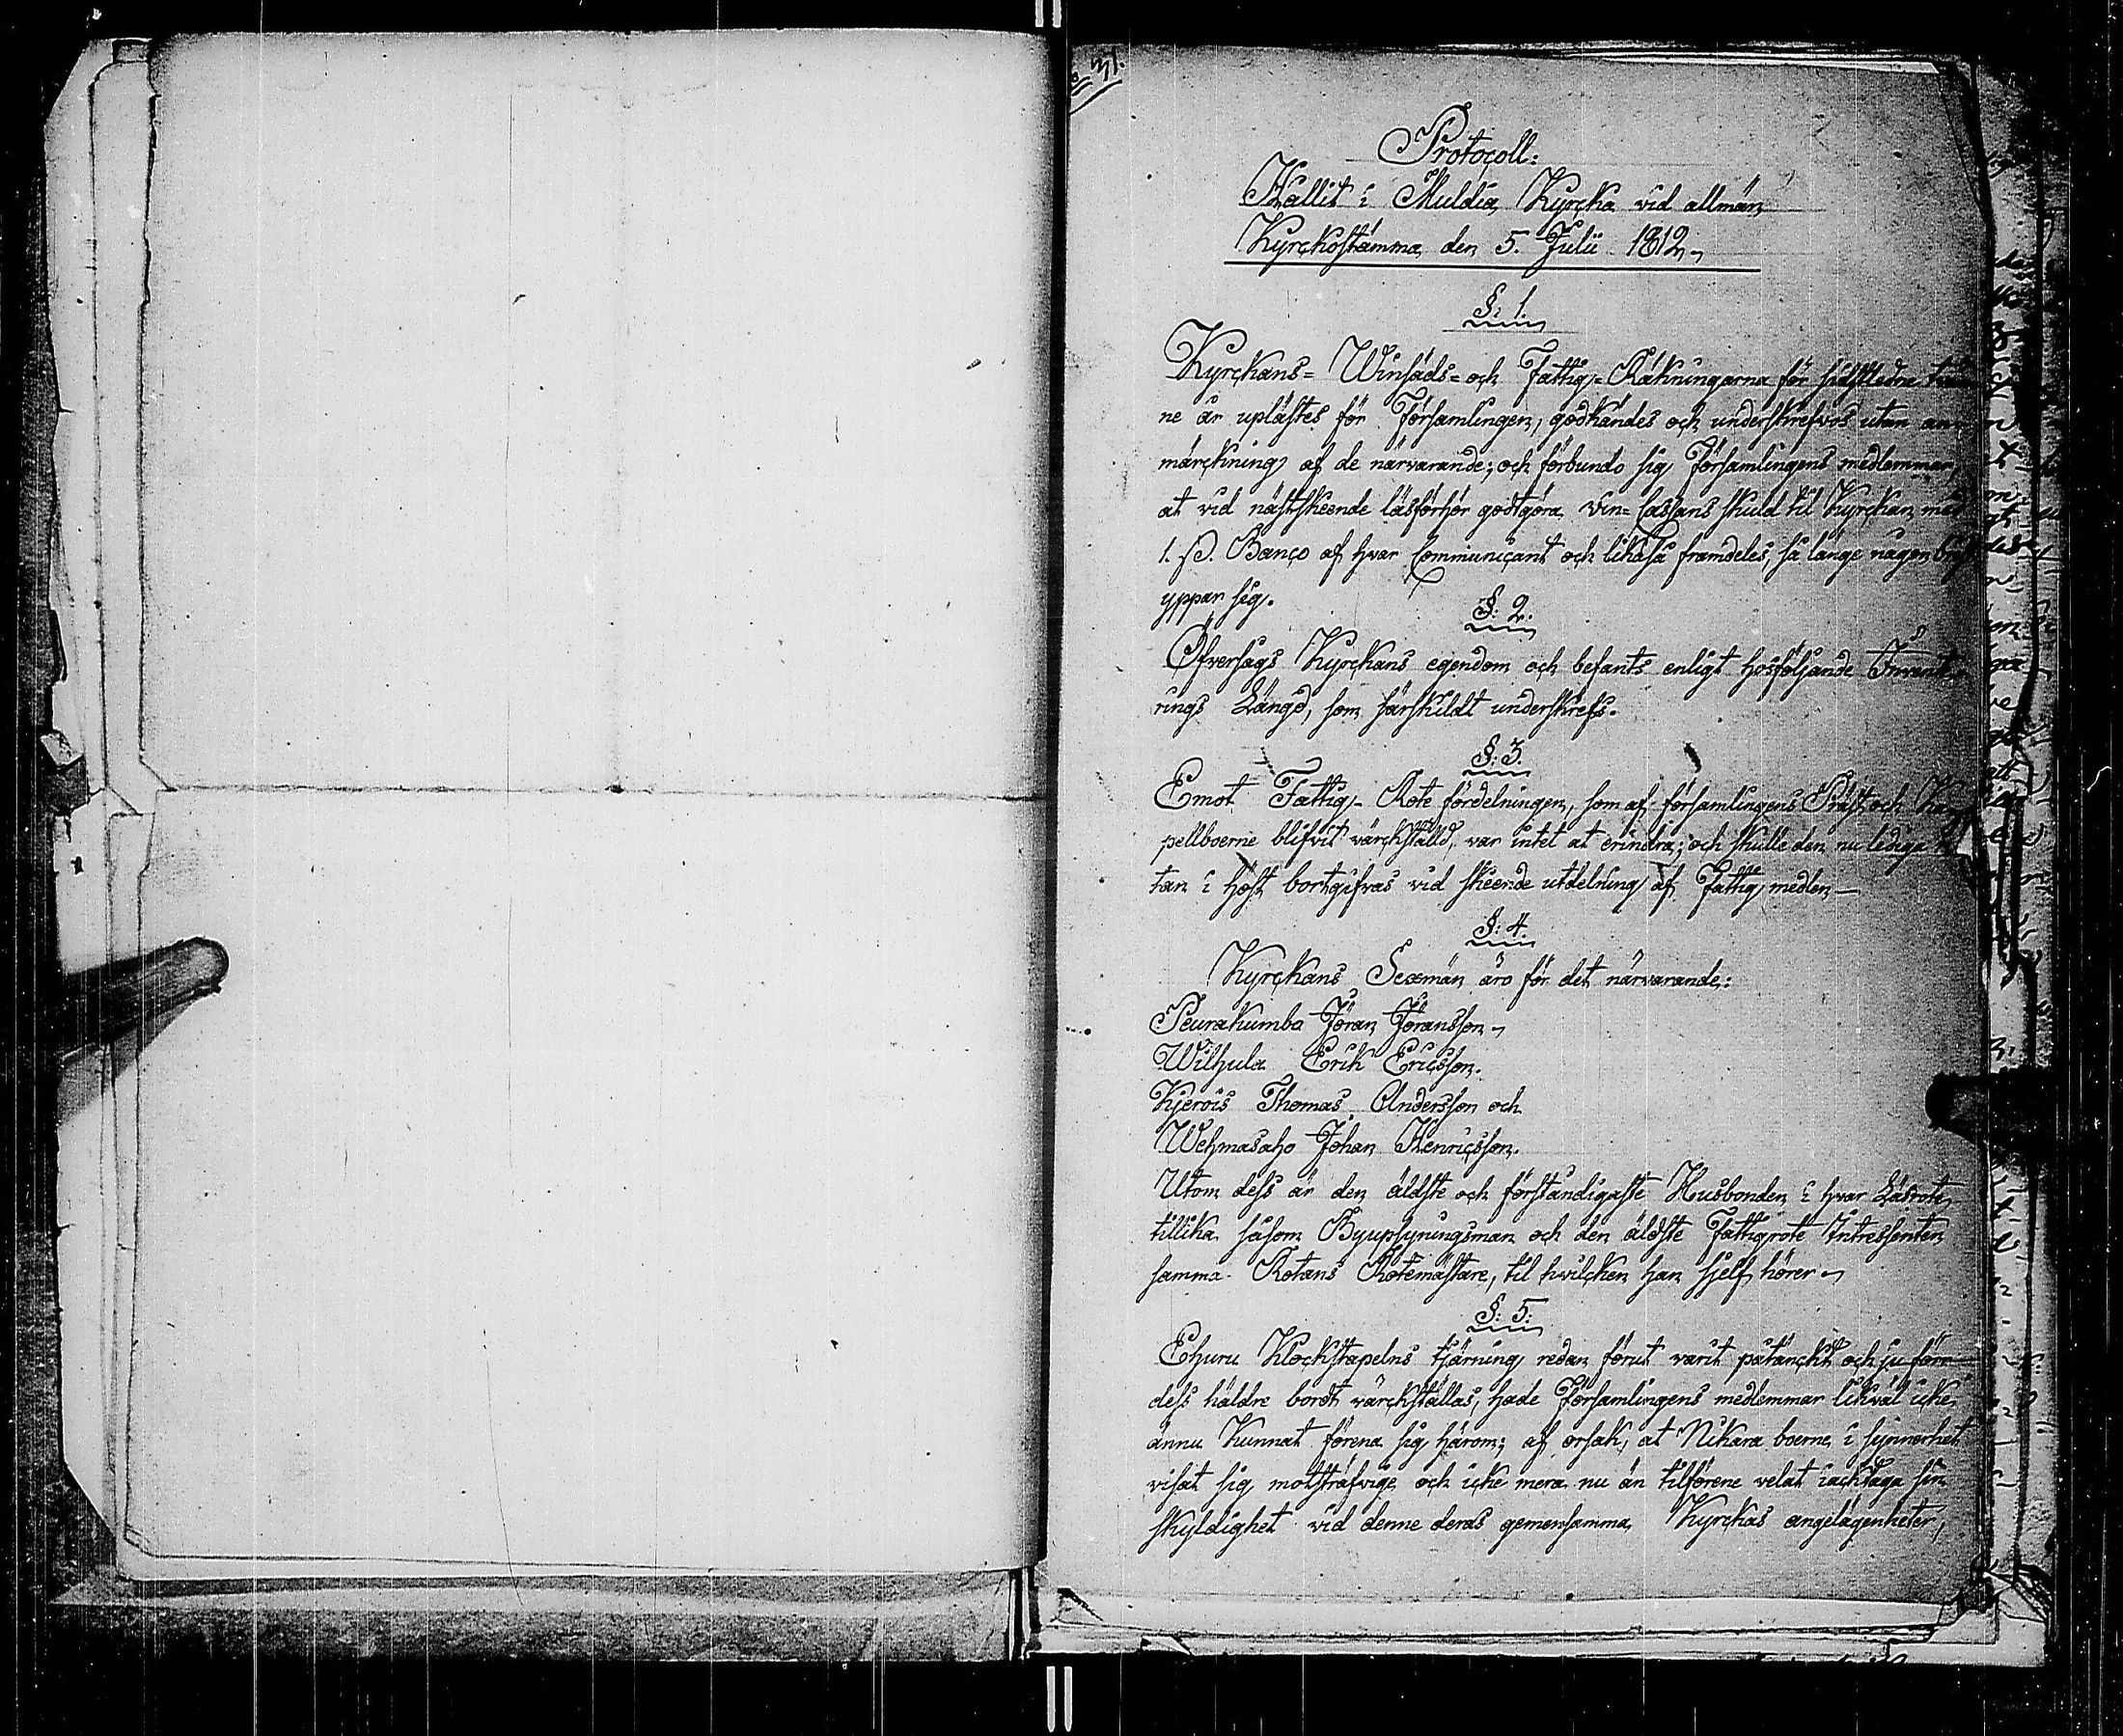 31.
Protocoll:
Hållit i Muldia Kyrcka vid allmän
Kyrckostämma den 5. Julii 1812.
§: 1.
Kyrckans= Winsäds= och Fattig=Räkningarna för sidstledne
ne år uplästes för Församlingen, godkändes och underskrefvos utan an-
märckning af de närvarande; och förbundo sig Församlingens medlemmar,
at vid nästskeende läsförhör godtgöra Vin= Cassans skuld til Kyrckan med
1. ß. Banco af hvar Communicant och likaså framdeles, så länge någon brist
yppar sig.
§: 2.
Öfversågs Kyrckans egendom och befants enligt hosföljande Invente-
rings Längd, som särskildt underskrefs.
§: 3.
Emot Fattig- Rote fördelningen, som af församlingens Präst och Ka-
pellboerne blifvit värckställd, var intet at erindra; och skulle den nu lediga Ro-
tan i höst bortgifvas vid skeende utdelning af Fattig medlen
§: 4.
Kyrckans Sexmän äro för det närvarande:
Peurakumbo Jöran Jöransson
Wilhula Erik Ericsson.
Kjerois Thomas Andersson och
Wehmasaho Johan Henricsson.
Utom dess är den äldste och förståndigaste Husbonden i hvar Läsrote
tillika såsom Byuppsyningsman och den äldste Fattigrote Intressenten
samma Rotans Rotemästare, til hvilcken han sjelf hörer
§: 5:
Ehuru Klockstapelns tjärning redan förut varit påtänckt och ju förr
dess häldre bordt värckställas, hade Församlingens medlemmar likväl icke
ännu kunnat förena sig härom; af orsak, at Nikara boerne i synnerhet
visat sig motsträfvige och icke mera nu än tilförene velat iacktaga sin
skyldighet vid denne deras gemensamma Kyrckas angelägenheter,